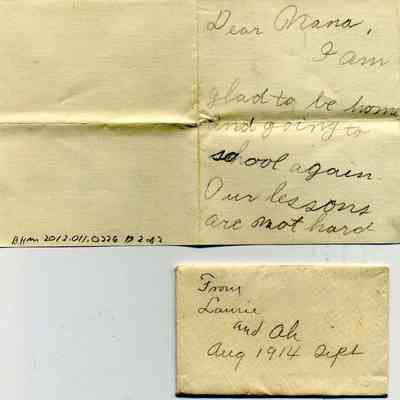 Dear Nana,
I am
glad to be home
and going to
school again.
Our lessons
are not hard
BHM 2012.011.0226 p 2 of 2
From
Laurie
and Ali
Aug 1914 Sept